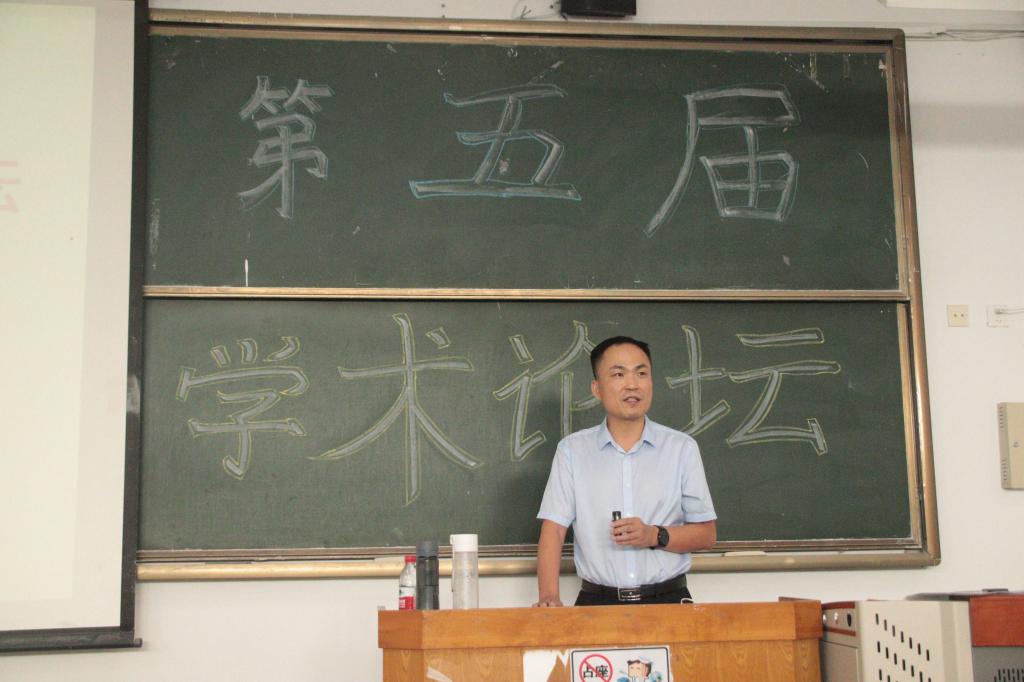 第五届
学术论坛
占座